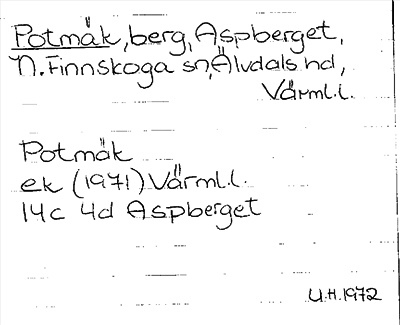 Potmäk, berg, Aspberget,
N. Finnskoga sn, Älvdals hd,
Värml.l.
Potmäk
ek (1971) Värml.l.
14c 4d Aspberget
U.H. 1972